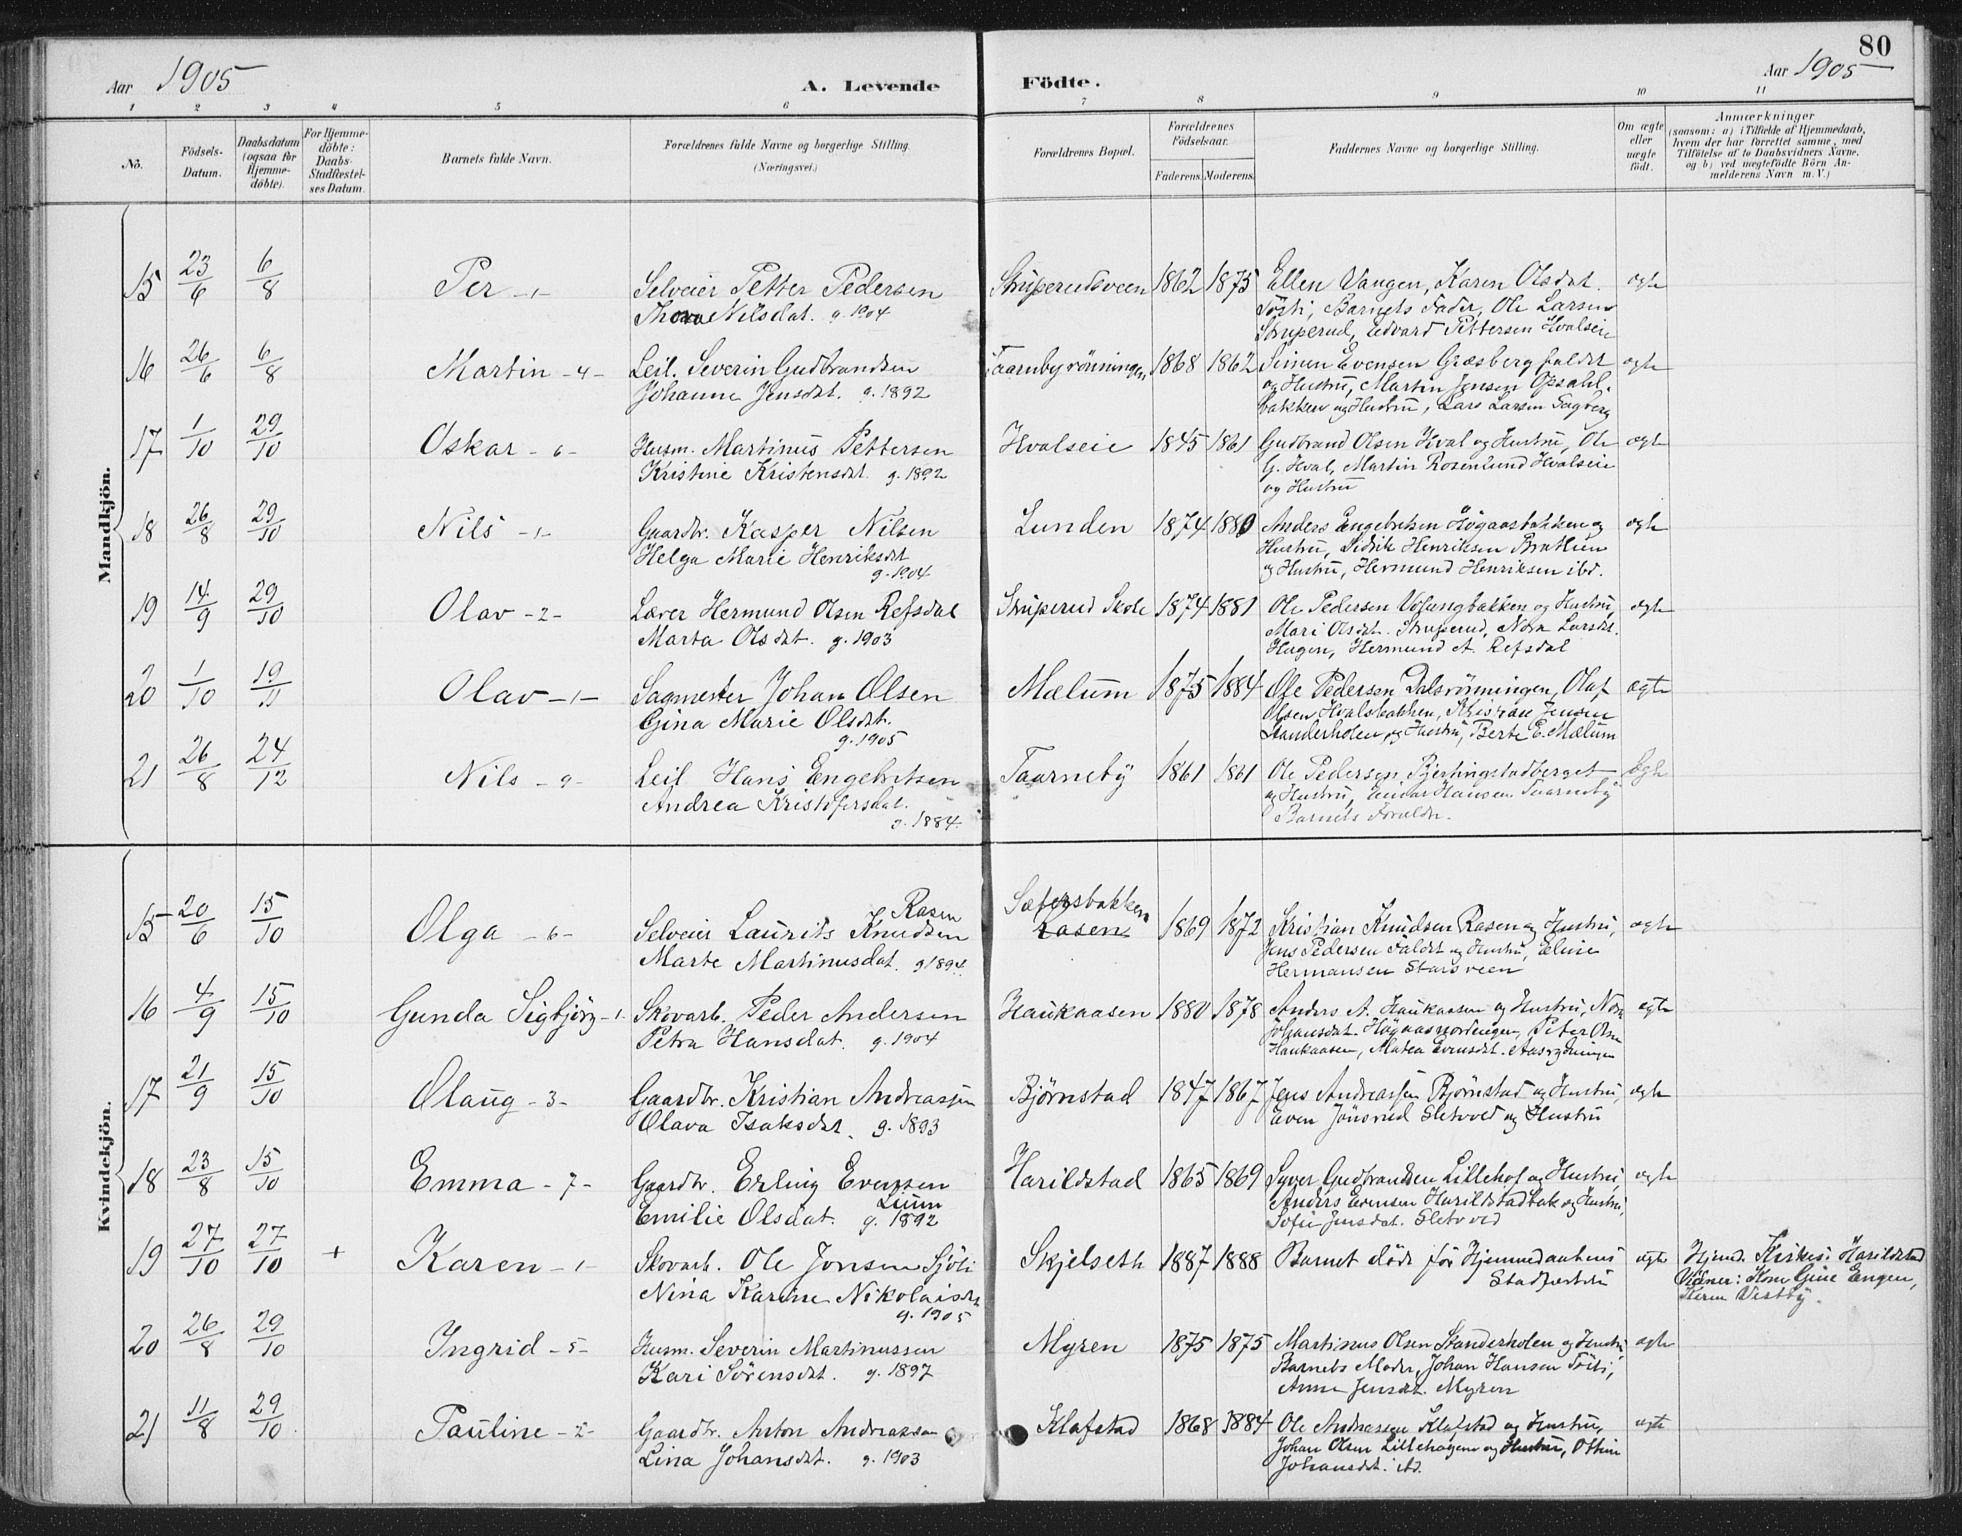 80
Aar 1905 A. Levende Födte. Aar 1905
1 2 3 4 5 6 7 8 9 10 11
Nö. Födsels-Datum. Daabsdatum (ogsaa for Hjemmedöbte). For Hjemmedöbte: Daabs-Stadfæstelses Datum. Barnets fulde Navn. Forældrenes fulde Navne og borgerlige Stilling. (Næringsvei.) Forældrenes Bopæl. Forældrenes Födselsaar. Faderens. Moderens. Faddernes Navne og borgerlige Stilling. Om ægte eller uægte födt. Anmærkninger (saasom: a) i Tilfælde af Hjemmedaab, hvem der har forrettet samme, med Tilföielse af to Daabsvidners Navne, og b) ved uægtefödte Börn Anmelderens Navn m. V.)
Mandkjön.
15 23/6 6/8 Per -1- Selveier Petter Pedersen Struperudsveen 1862 1875 Ellen Vangen, Karen Olsdat. ægte
Thora Nilsdat. g. 1904 Törti, Barnets Fader, Ole Larsen
Struperud, Edvard Pettersen Hvalseie
16 26/6 6/8 Martin -4- Leil. Severin Gudbrandsen Taarnbyrönningen 1868 1862 Simen Evensen Græsberg faldet ægte
Johanne Jensdat. g. 1892 og Hustru, Martin Jensen Opsahl-
bakken og Hustru, Lars Larsen Sagberg
17 1/10 29/10 Oskar -6- Husm. Martinus Pettersen Hvalseie 1845 1861 Gudbrand Olsen Hval og Hustru, Ole ægte
Kristine Kristensdat. g. 1892 G. Hval, Martin Rosenlund Hvalseie
og Hustru
18 26/8 29/10 Nils -1- Gaardbr. Kasper Nilsen Lunden 1874 1880 Anders Engebretsen Högaasbakken og ægte
Helga Marie Henriksdat Hustru, Didrik Henriksen Brathien
g. 1904 og Hustru, Hermund Henriksen ibd.
19 14/9 29/10 Olav -2- Lærer Hermund Olsen Refsdal Struperud Skole 1874 1881 Ole Pedersen Volungbakken og Hustru, ægte
Marta Olsdat. g. 1903 Mari Olsdat. Struperud, Nora Larsdat.
Hagen, Hermund A. Refsdal
20 1/10 19/11 Olav -1- Sagmester Johan Olsen Mælum 1875 1884 Ole Pedersen Dalsrönningen, Olaf ægte
Gina Marie Olsdat. Olsen Hvalsbakken, Kristian Jensen
g. 1905 Standerholen og Hustru, Berte E. Mælum
21 26/8 24/12 Nils -9- Leil Hans Engebretsen Taarneby 1861 1861 Ole Pedersen Bjertingstadberget ægte
Andrea Kristofersdat. og Hustru, Einar Hansen Taarneby
g. 1884. Barnets Forældre.
Kvindekjön.
Rasen Sætersbakken
15 20/6 15/10 Olga -6- Selveier Laurits Knudsen Rasen 1869 1872 Kristian Knudsen Rasen og Hustru, ægte
Marte Martinusdat. g 1894. Jens Pedersen Faldet og Hustru, Eline
Hermansen Starsveen
16 4/9 15/10 Gunda Sigbjörg -1- Skovarb. Peder Andersen Haukaasen 1880 1878 Anders A. Haukaasen og Hustru, Nora ægte
Petra Hansdat. g. 1904 Johansdat. Högaas Olsen
Haukaasen, Matea Evensdat. Aasrydningen
17 21/9 15/10 Olaug -3- Gaardbr. Kristian Andreassen Bjørnstad 1847 1867 Jens Andreassen Bjørnstad og Hustru, ægte
Olava Isaksdat. g. 1893 Even Jönsrud Sletved og Hustru
18 23/8 15/10 Emma -7- Gaardbr. Erling Evensen Harildstad 1865 1869 Syver Gudbrandsen Lillehof og Hustru, ægte
Lium
Emilie Olsdat. g. 1892 Anders Evensen Harildstadbak og Hustru,
Sofie Jensdat. Sletved
19 27/10 27/10 + Karen -1- Skovarb. Ole Jonsen Sjöli Skjelseth 1887 1888 Barnet döde för Hjemmedaabens ægte Hjemd. Kirkes: Harildstad
Nina Karine Nikolaisdat Stadfæstelse Vidner: Kone Gine Engen,
g. 1905 Karen Vestby.
20 26/8 29/10 Ingrid -5- Husm. Severin Martinussen Myren 1875 1875 Martinus Olsen Standerholen og Hustru, ægte
Kari Sørensdat. g. 1897 Barnets Moder, Johan Hansen Törti,
Anne Jensdat. Myren
21 11/8 29/10 Pauline -2- Gaardbr. Anton Andreassen Klafstad 1868 1884 Ole Andreassen Klafstad og Hustru, ægte
Lina Johansdat. g. 1903 Johan Olsen Lillehagen og Hustru, Othine
Johansdat. ibd.